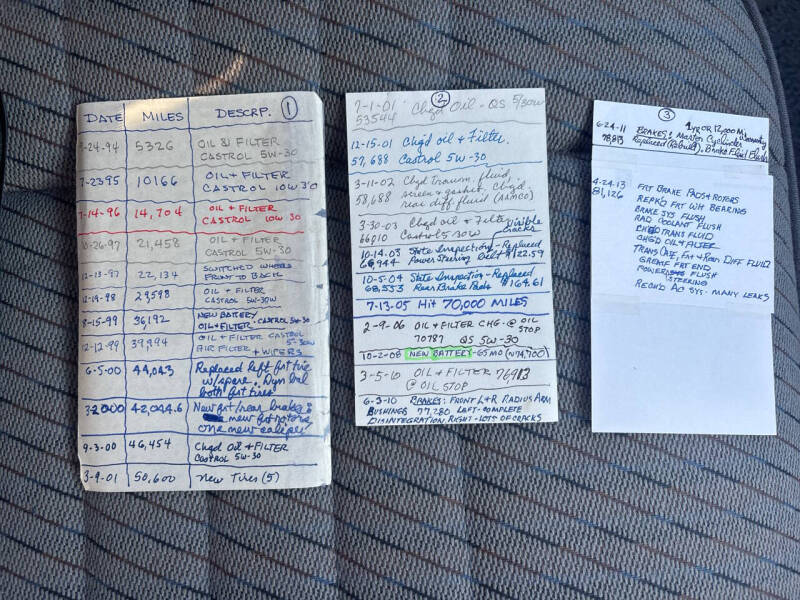 DATE MILES DESCRP. 1
-24-94 5326 OIL & FILTER
CASTROL 5W-30
7-23-95 10166 OIL + FILTER
CASTROL 10W 30
7-14-96 14,704 OIL + FILTER
CASTROL 10W 30
10-26-97 21,458 OIL + FILTER
CASTROL 5W-30
12-13-97 22,134 SWITCHED WHEELS
FRONT TO BACK
12-19-98 29,598 OIL + FILTER
CASTROL 5W-30W
8-15-99 36,192 NEW BATTERY
OIL + FILTER - CASTROL 5W-30
12-12-99 39,994 OIL + FILTER CASTROL
5-30W
AIR FILTER + WIPERS
6-5-00 44,043 Replaced left frt tire
w/spare. Dyn bal
both frt tires
3-2000 42,044.6 New frt/rear brakes
new frt rotors
one new caliper
9-3-00 46,454 Chgd Oil + FILTER
CASTROL 5W-30
3-9-01 50,600 New Tires (5)
2
7-1-01 Chgd Oil - QS 5/30W
53544
12-15-01 Chgd oil + Filter.
57,688 Castrol 5W-30
3-11-02 Chgd Transm. fluid,
58,688 screen & gasket, Chg'd
rear diff. fluid (AAMCO)
3-30-03 Chgd oil + Filter
66010 Castrol 5 30W
visible
cracks
10-14-03 State Inspection - Replaced
66,944 Power Steering Belt $122.59
10-5-04 State Inspection - Replaced
68,553 Rear Brake Pads $164.61
7-13-05 Hit 70,000 MILES
2-9-06 OIL + FILTER CHG. @ OIL
STOP
70787 QS 5W-30
10-2-08 NEW BATTERY - 65MO (N74,700)
3-5-10 OIL + FILTER 76913
@ OIL STOP
6-3-10 BRAKES: FRONT L+R RADIUS ARM
BUSHINGS 77,280 LEFT - COMPLETE
DISINTEGRATION. RIGHT - LOTS OF CRACKS
3
1 YR OR 12,000 Mi warranty
6-24-11 BRAKES: Master Cylinder
78,813 Replaced (Rebuilt), Brake Fluid Flush
4-24-13 FRT BRAKE PADS + ROTORS
81,126 REPK'D FRT WH BEARING
BRAKE SYS FLUSH
RAD COOLANT FLUSH
CHGD TRANS FLUID
CHGD OIL + FILTER
TRANS CASE, Frt + REAR DIFF FLUID
GREASE FRT END
POWER FLUSH
STEERING
RECH'D AC SYS - MANY LEAKS